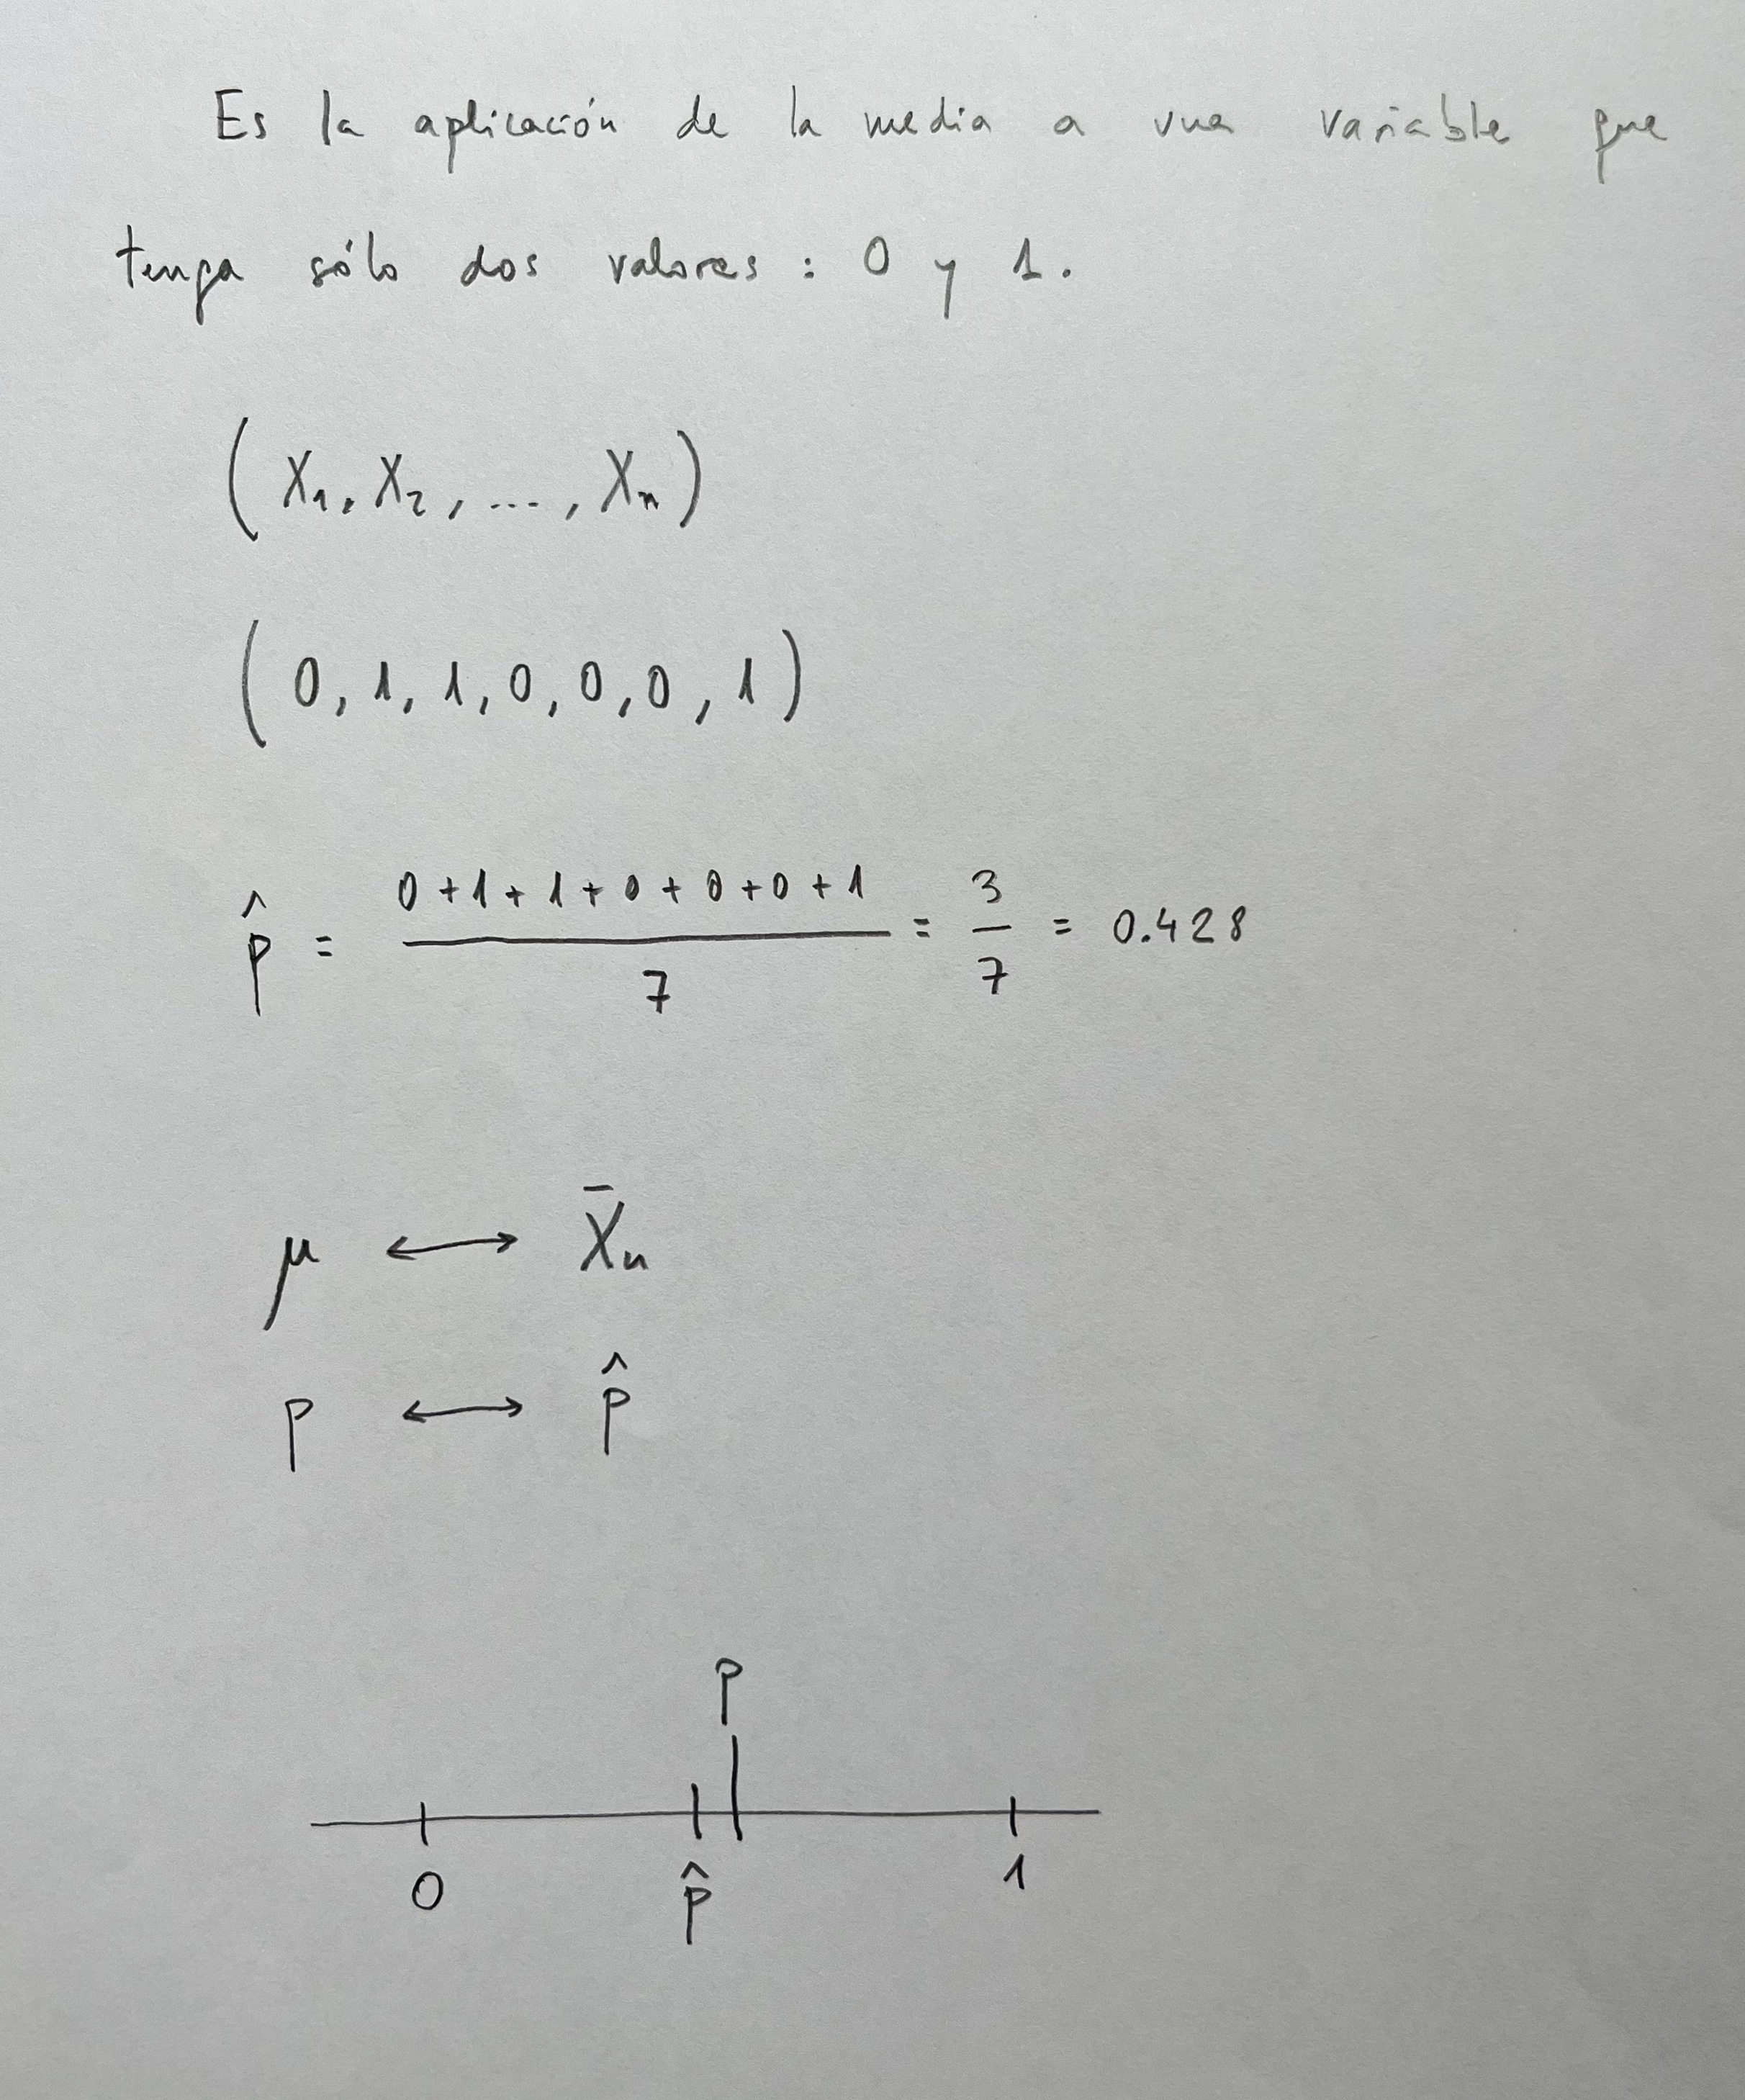 Es la aplicación de la media a una variable que
tenga sólo dos valores : 0 y 1.
( X₁, X₂, ..., Xₙ )
( 0, 1, 1, 0, 0, 0, 1 )
p̂ = (0 + 1 + 1 + 0 + 0 + 0 + 1) / 7 = 3/7 = 0.428
μ ⟷ X̄ₙ
p ⟷ p̂
p
0 p̂ 1